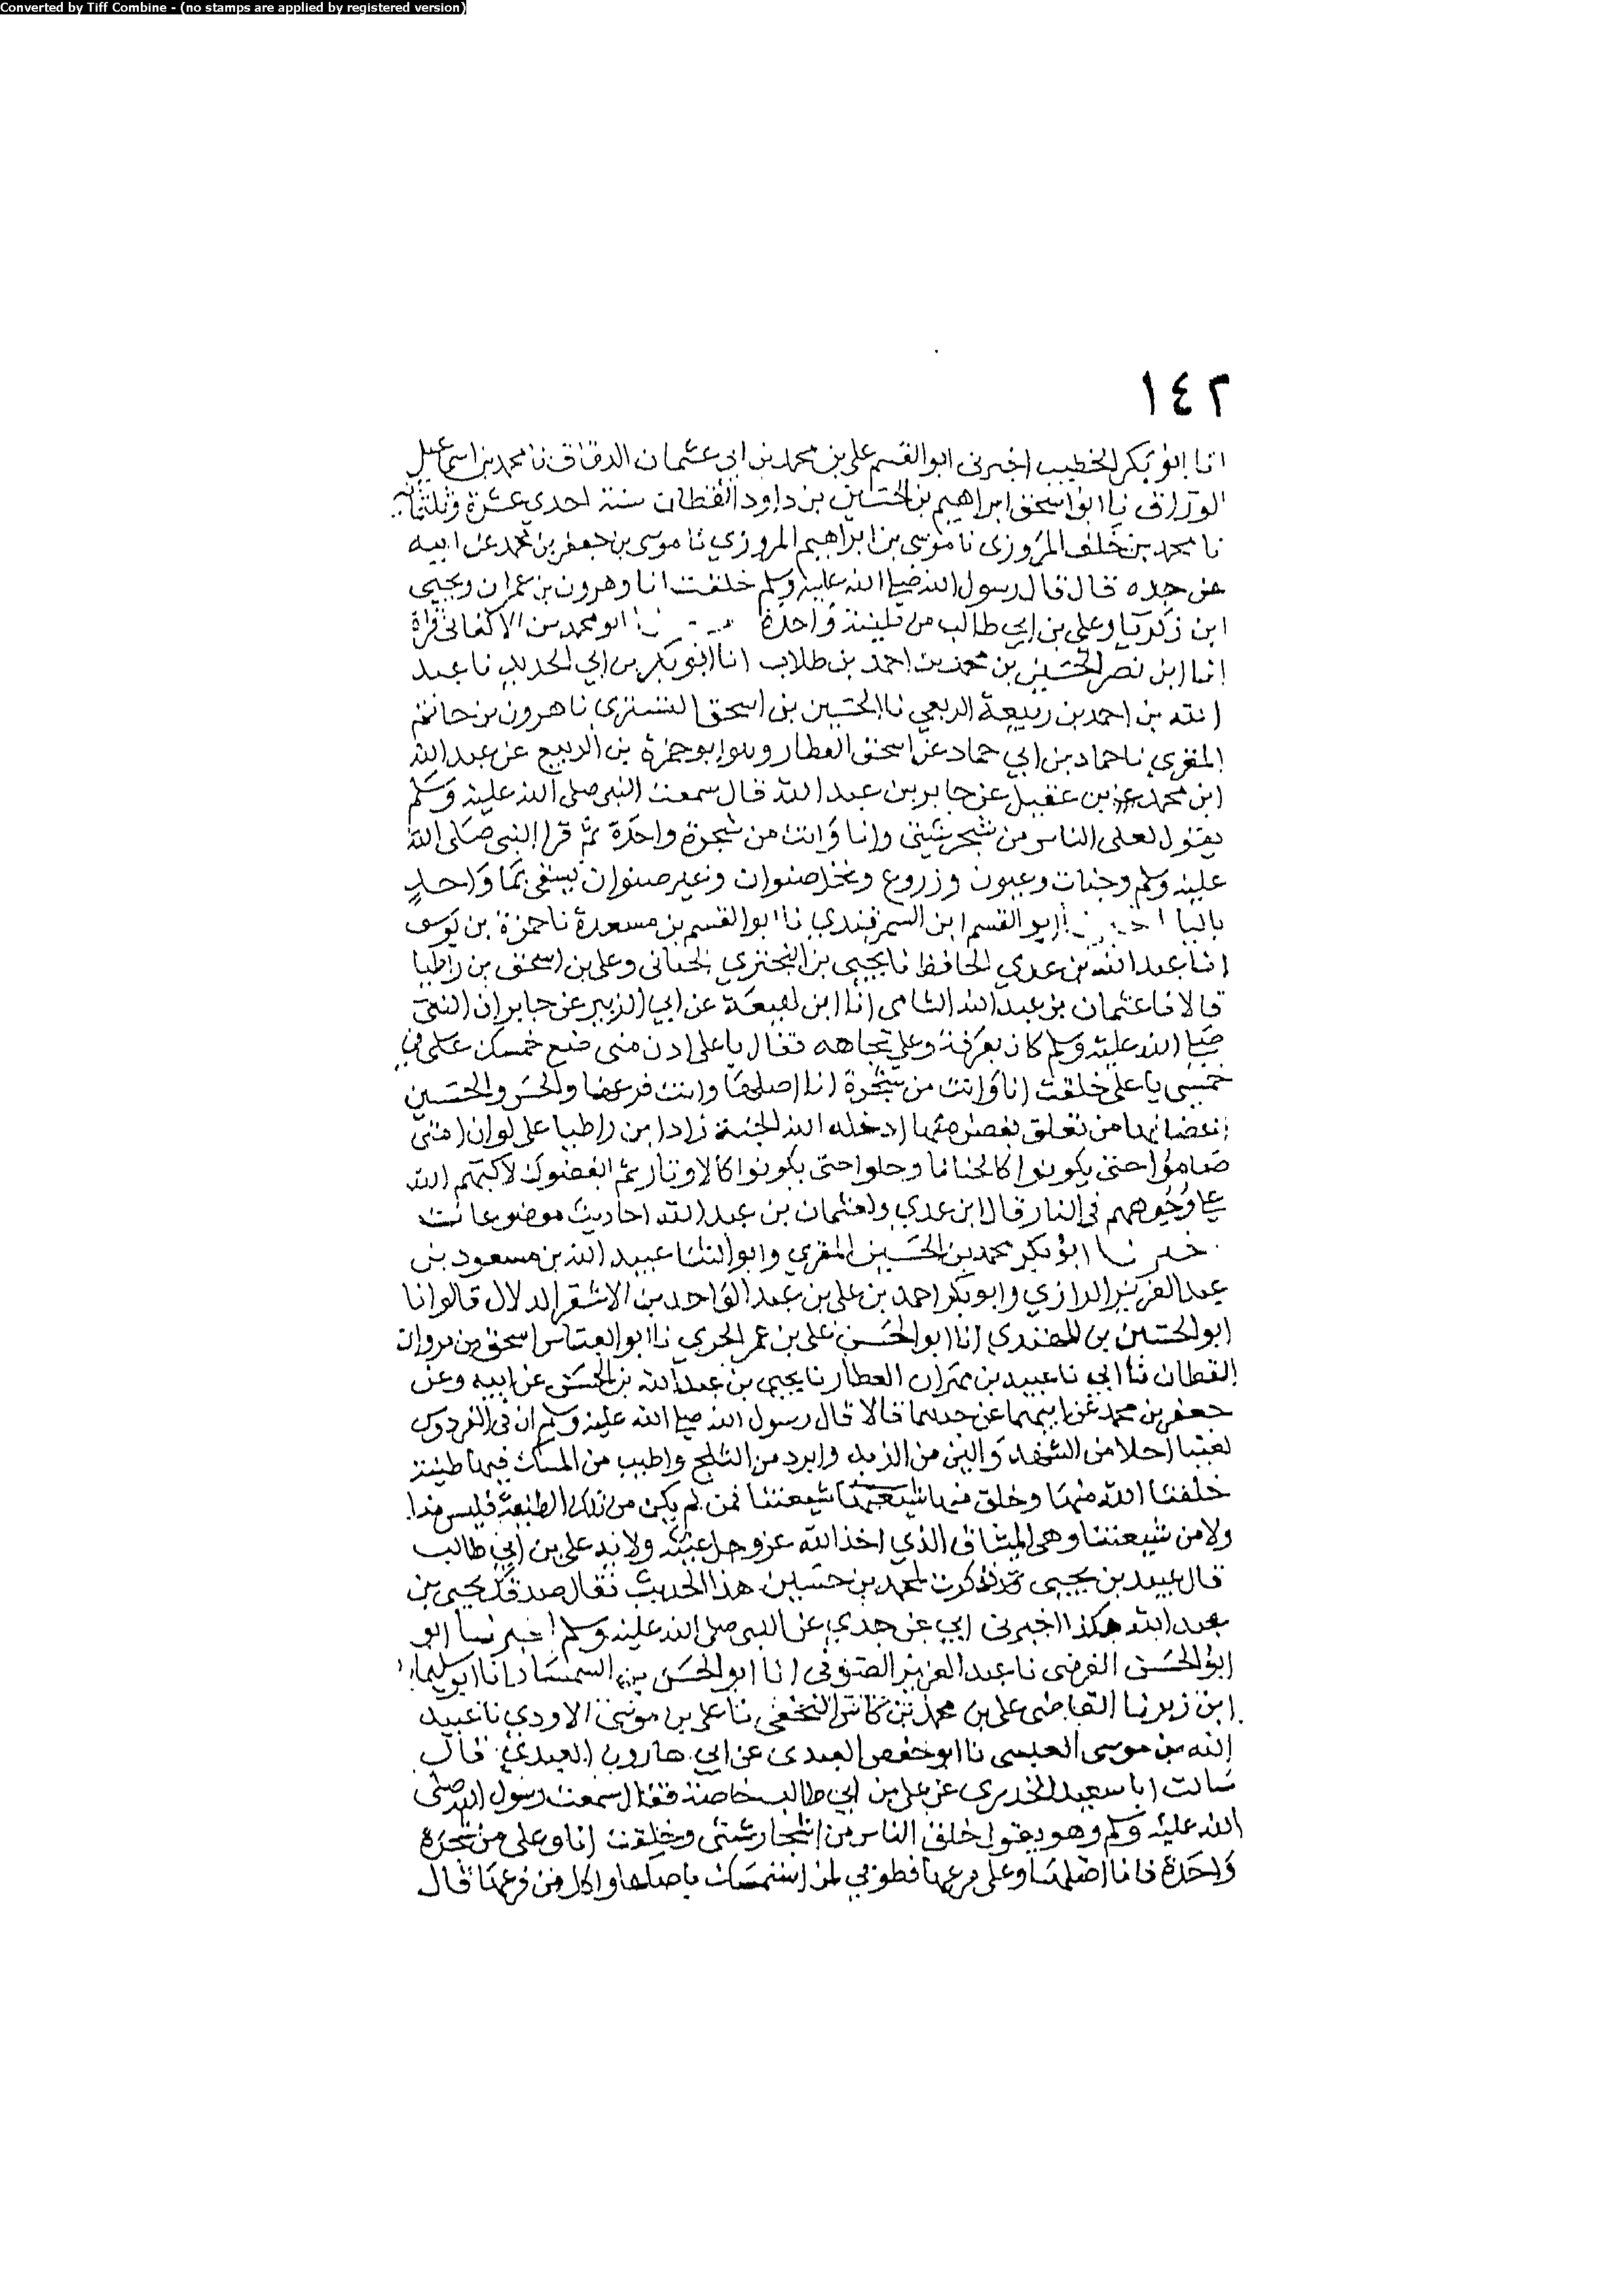 Converted by Tiff Combine - (no stamps are applied by registered version)
١٤٢
انا ابو بكر الخطيب اخبرنى ابو القسم على بن محمد بن ابي عثمان الدقاق نا محمد بن اسماعيل
الوراق نا ابو اسحق ابراهيم بن الحسين بن داود القطان سنة احدي عشرة وثلثماية
نا محمد بن خلف المروزى نا موسى بن ابراهيم المروزي نا موسى بن جعفر بن محمد عن ابيه
عن جده قال قال رسول الله صلى الله عليه وسلم خلقت انا وهرون بن عمران ويحيى
ابن زكريا وعلي بن ابي طالب من طينة واحدة ابو محمد بن الاكفانى قراة
انا ابن نصر الحسين بن محمد بن احمد بن طلاب انا ابو بكر بن ابي الحديد نا عبد
الله بن احمد بن ربيعة الربعي نا الحسين بن اسحق التسترى نا هرون بن حاتم
المقرى نا حماد بن ابي حماد عن اسحق العطار وهو ابو حمزة بن الربيع عن عبد الله
ابن محمد بن عقيل عن جابر بن عبد الله قال سمعت النبى صلى الله عليه وسلم
يقول لعلى الناس من شجر شتى وانا وانت من شجرة واحدة ثم قرا النبى صلى الله
عليه وسلم وجنات وعيون وزروع ونخل صنوان وغير صنوان يسقى بما واحد
باليا ابو القسم ابن السمرقندي نا ابو القسم بن مسعدة نا حمزة بن يوسف
انا عبد الله بن عدي الحافظ نا يحيى بن البختري الحنانى وعلى بن اسحق بن زاطيا
قالا نا عثمان بن عبد الله الشامى انا ابن لهيعة عن ابي الزبير عن جابر ان النبى
صلى الله عليه وسلم كان بعرفة وعلى تجاهه فقال يا على ادن منى ضع خمسك على فى
خمسى يا على خلقت انا وانت من شجرة انا اصلها وانت فرعها والحسن والحسين
اغصانها من تعلق بغصن منها ادخله الله الجنة زاد ابن زاطيا على لو ان امتى
صاموا حتى يكونوا كالحنايا وصلوا حتى يكونوا كالاوتار ثم ابغضوك لاكبهم الله
على وجوههم فى النار قال ابن عدي ولعثمان بن عبد الله احاديث موضوعات
خبرنا ابو بكر محمد بن الحسين المقري وابو الثنا عبيد الله بن مسعود بن
عبد العزيز الرازي وابو بكر احمد بن على بن عبد الواحد بن الاشقر الدلال قالوا نا
ابو الحسين بن المهتدي انا ابو الحسن على بن عمر الحربي نا ابو العباس اسحق بن مروان
القطان نا ابي نا عبيد بن مهران العطار نا يحيى بن عبد الله بن الحسن عن ابيه وعن
جعفر بن محمد عن ابيهما عن جدهما قالا قال رسول الله صلى الله عليه وسلم ان فى الفردوس
لعينا احلا من الشهد والين من الزبد وابرد من الثلج واطيب من المسك فيها طينة
خلقنا الله منها وخلق منها شيعتنا فمن لم يكن من تلك الطينة فليس منا
ولا من شيعتنا وهى الميثاق الذي اخذ الله عز وجل عليه ولاية على بن ابي طالب
قال عبيد بن يحيى ذكرت لمحمد بن حسين هذا الحديث فقال صدقك يحيى بن
عبد الله هكذا اخبرنى ابي عن جدي عن النبى صلى الله عليه وسلم اخبرنا ابو
ابو الحسن الفرضى نا عبد العزيز الصوفى انا ابو الحسن بن السمسار انا ابو سليمان
ابن زبر نا القاضى على بن محمد بن كاس النخعى نا على بن موسى الاودي نا عبيد
الله بن موسى العبسى نا ابو حفص العبدى عن ابي هارون العبدي قال
سالت ابا سعيد الخدرى عن على بن ابي طالب خاصة فقال سمعت رسول الله صلى
الله عليه وسلم وهو يقول خلق الناس من اشجار شتى وخلقت انا وعلى من شجرة
واحدة فانا اصلها وعلى فرعها فطوبي لمن استمسك باصلها واكل من فرعها قال